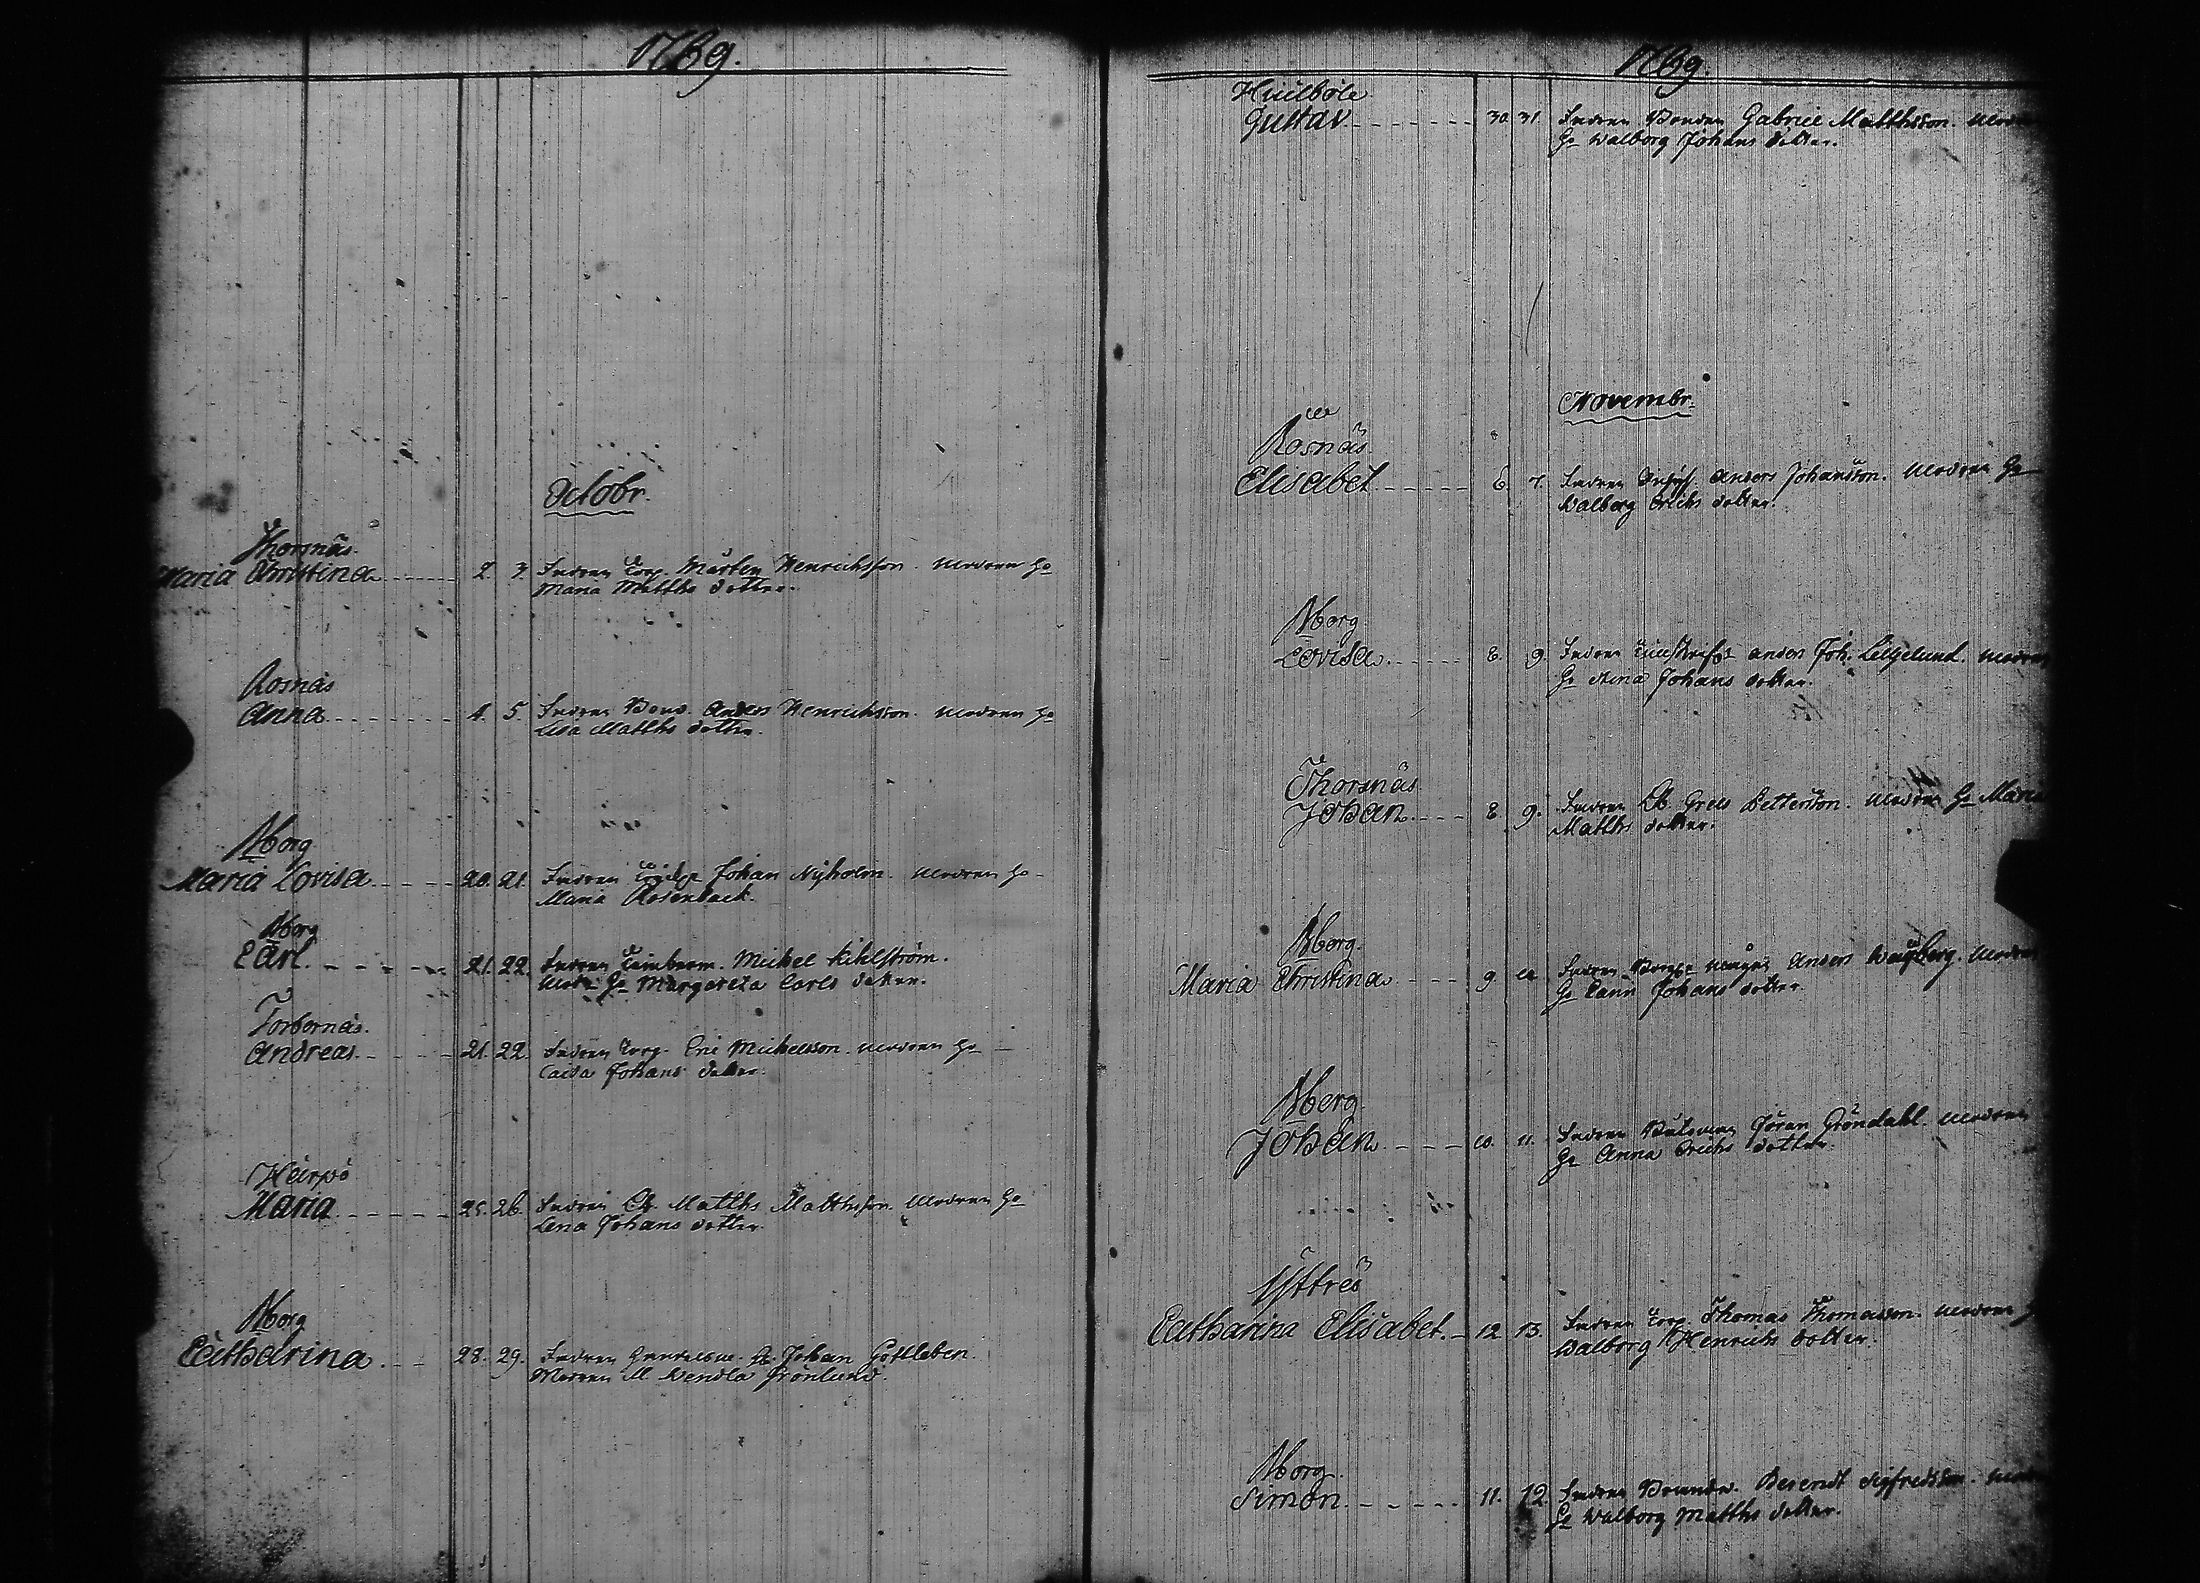 1769.
Octobr.
Thorsnäs.
Maria Christina 2. 3. Fadren Torp. Mårten Henrichsson. Modren H:o
Maria Matths dotter.
Rosnäs
Anna 4. 5. Fadren Bond. Anders Henrichsson. Modren H:o
Lisa Matths dotter.
Åborg
Maria Lovisa 20. 21. Fadren Johan Nyholm. Modren H:o
Maria Rosenback.
Åborg
Carl. 21. 22. Fadren Timberm. Michel Kihlström.
Modr. H:o Margareta Carls dotter.
Torbornäs.
Andreas. 21. 22. Fadren Torp. Eric Michelsson. Modren H:o
Caisa Johans dotter.
Heirpö
Maria 25. 26. Fadren Matths Matthsson. Modren H:o
Lena Johans dotter.
Åborg
Catharina. 28. 29. Fadren Johan Gottleben.
Modren Wendla Grönlund.
1769.
Huilböle
Gustav 30. 31. Fadren Bonden Gabriel Matthsson.
H:o Walborg Johans dotter.
Novembr.
Rosnäs.
Elisabet 6. 7. Fadren Anders Johansson. Modren H:o
Walborg Erichs dotter.
Åborg
Lovisa. 8. 9. Fadren Anders Joh. Liljelund.
H:o Stina Johans dotter.
Thorsnäs
Johan. 8. 9. Fadren Grels Pettersson. Modren H:o Maria
Matths dotter.
Åborg.
Maria Christina 9. 10. Fadren Anders Wegberg.
H:o Johans dotter.
Åborg.
Johan 10. 11. Fadren Båtsman Jöran Gröndahl. Modren
H:o Anna Erichs dotter.
Yttreö
Catharina Elisabet. 12. 13. Fadren Torp. Thomas Thomasson. Modren
Walborg Henrichs dotter.
Åborg.
Simon. 11. 12. Fadren Berendt Sigfredsson.
H:o Walborg Matths dotter.